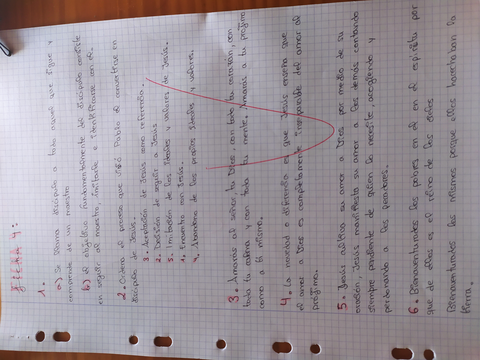 Ficha 4:
1.
a) Se llama discípulo a todo aquel que sigue y
comprende de un maestro
b) El objetivo fundamentalmente del discípulo consiste
en seguir al maestro, imitarle e identificarse con él.
2. Ordena el proceso que Pablo al convertirse en
discípulo de Jesús.
3. Aceptación de Jesús como referencia.
2. Decisión de seguir a Jesús
5. Imitación de los ideales y valores de Jesús.
1. Encuentro con Jesús.
4. Abandono de los propios ideales y valores.
3. Amarás al señor, tu Dios, con todo tu corazón, con
toda tu alma y con toda tu mente. Amarás a tu prójimo
como a ti mismo.
4. La novedad o diferencia es que Jesús enseña que
el amor a Dios es completamente inseparable del amor al
prójimo.
5. Jesús su amor a Dios por medio de su
oración, Jesús manifiesta su amor a los demás estando
siempre pendiente de quien lo necesite, acogiendo y
perdonando a los pecadores.
6. Bienaventurados los pobres en el espíritu por
que de ellos es el reino de los cielos
Bienaventurados los mismos porque ellos heredarán la
tierra.